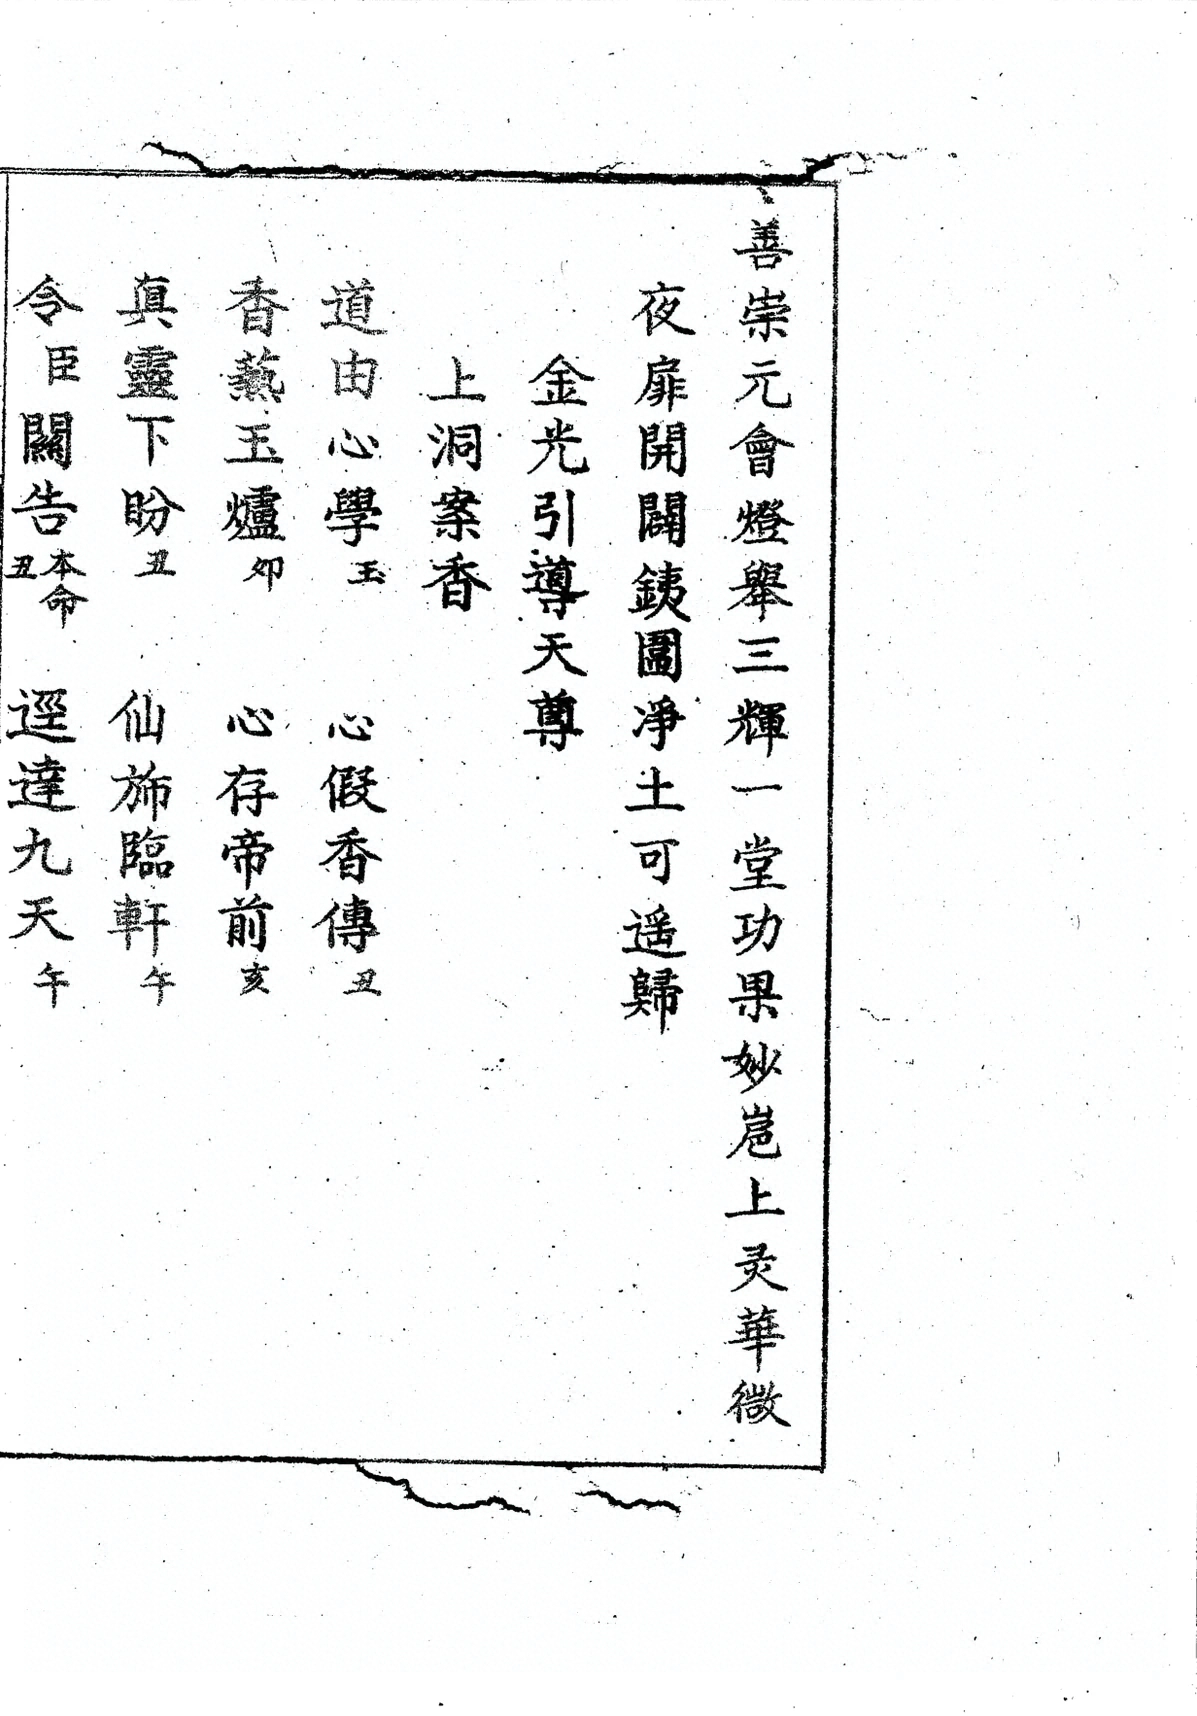 善崇元會燈舉三輝一堂功果妙㞬上灵華微
夜扉開闢銕圍凈土可遥歸
金光引導天尊
上洞案香
道由心學玉 心假香傳丑
香爇玉爐卯 心存帝前亥
真靈下盼丑 仙旆臨軒午
令臣關告本命丑 逕達九天午